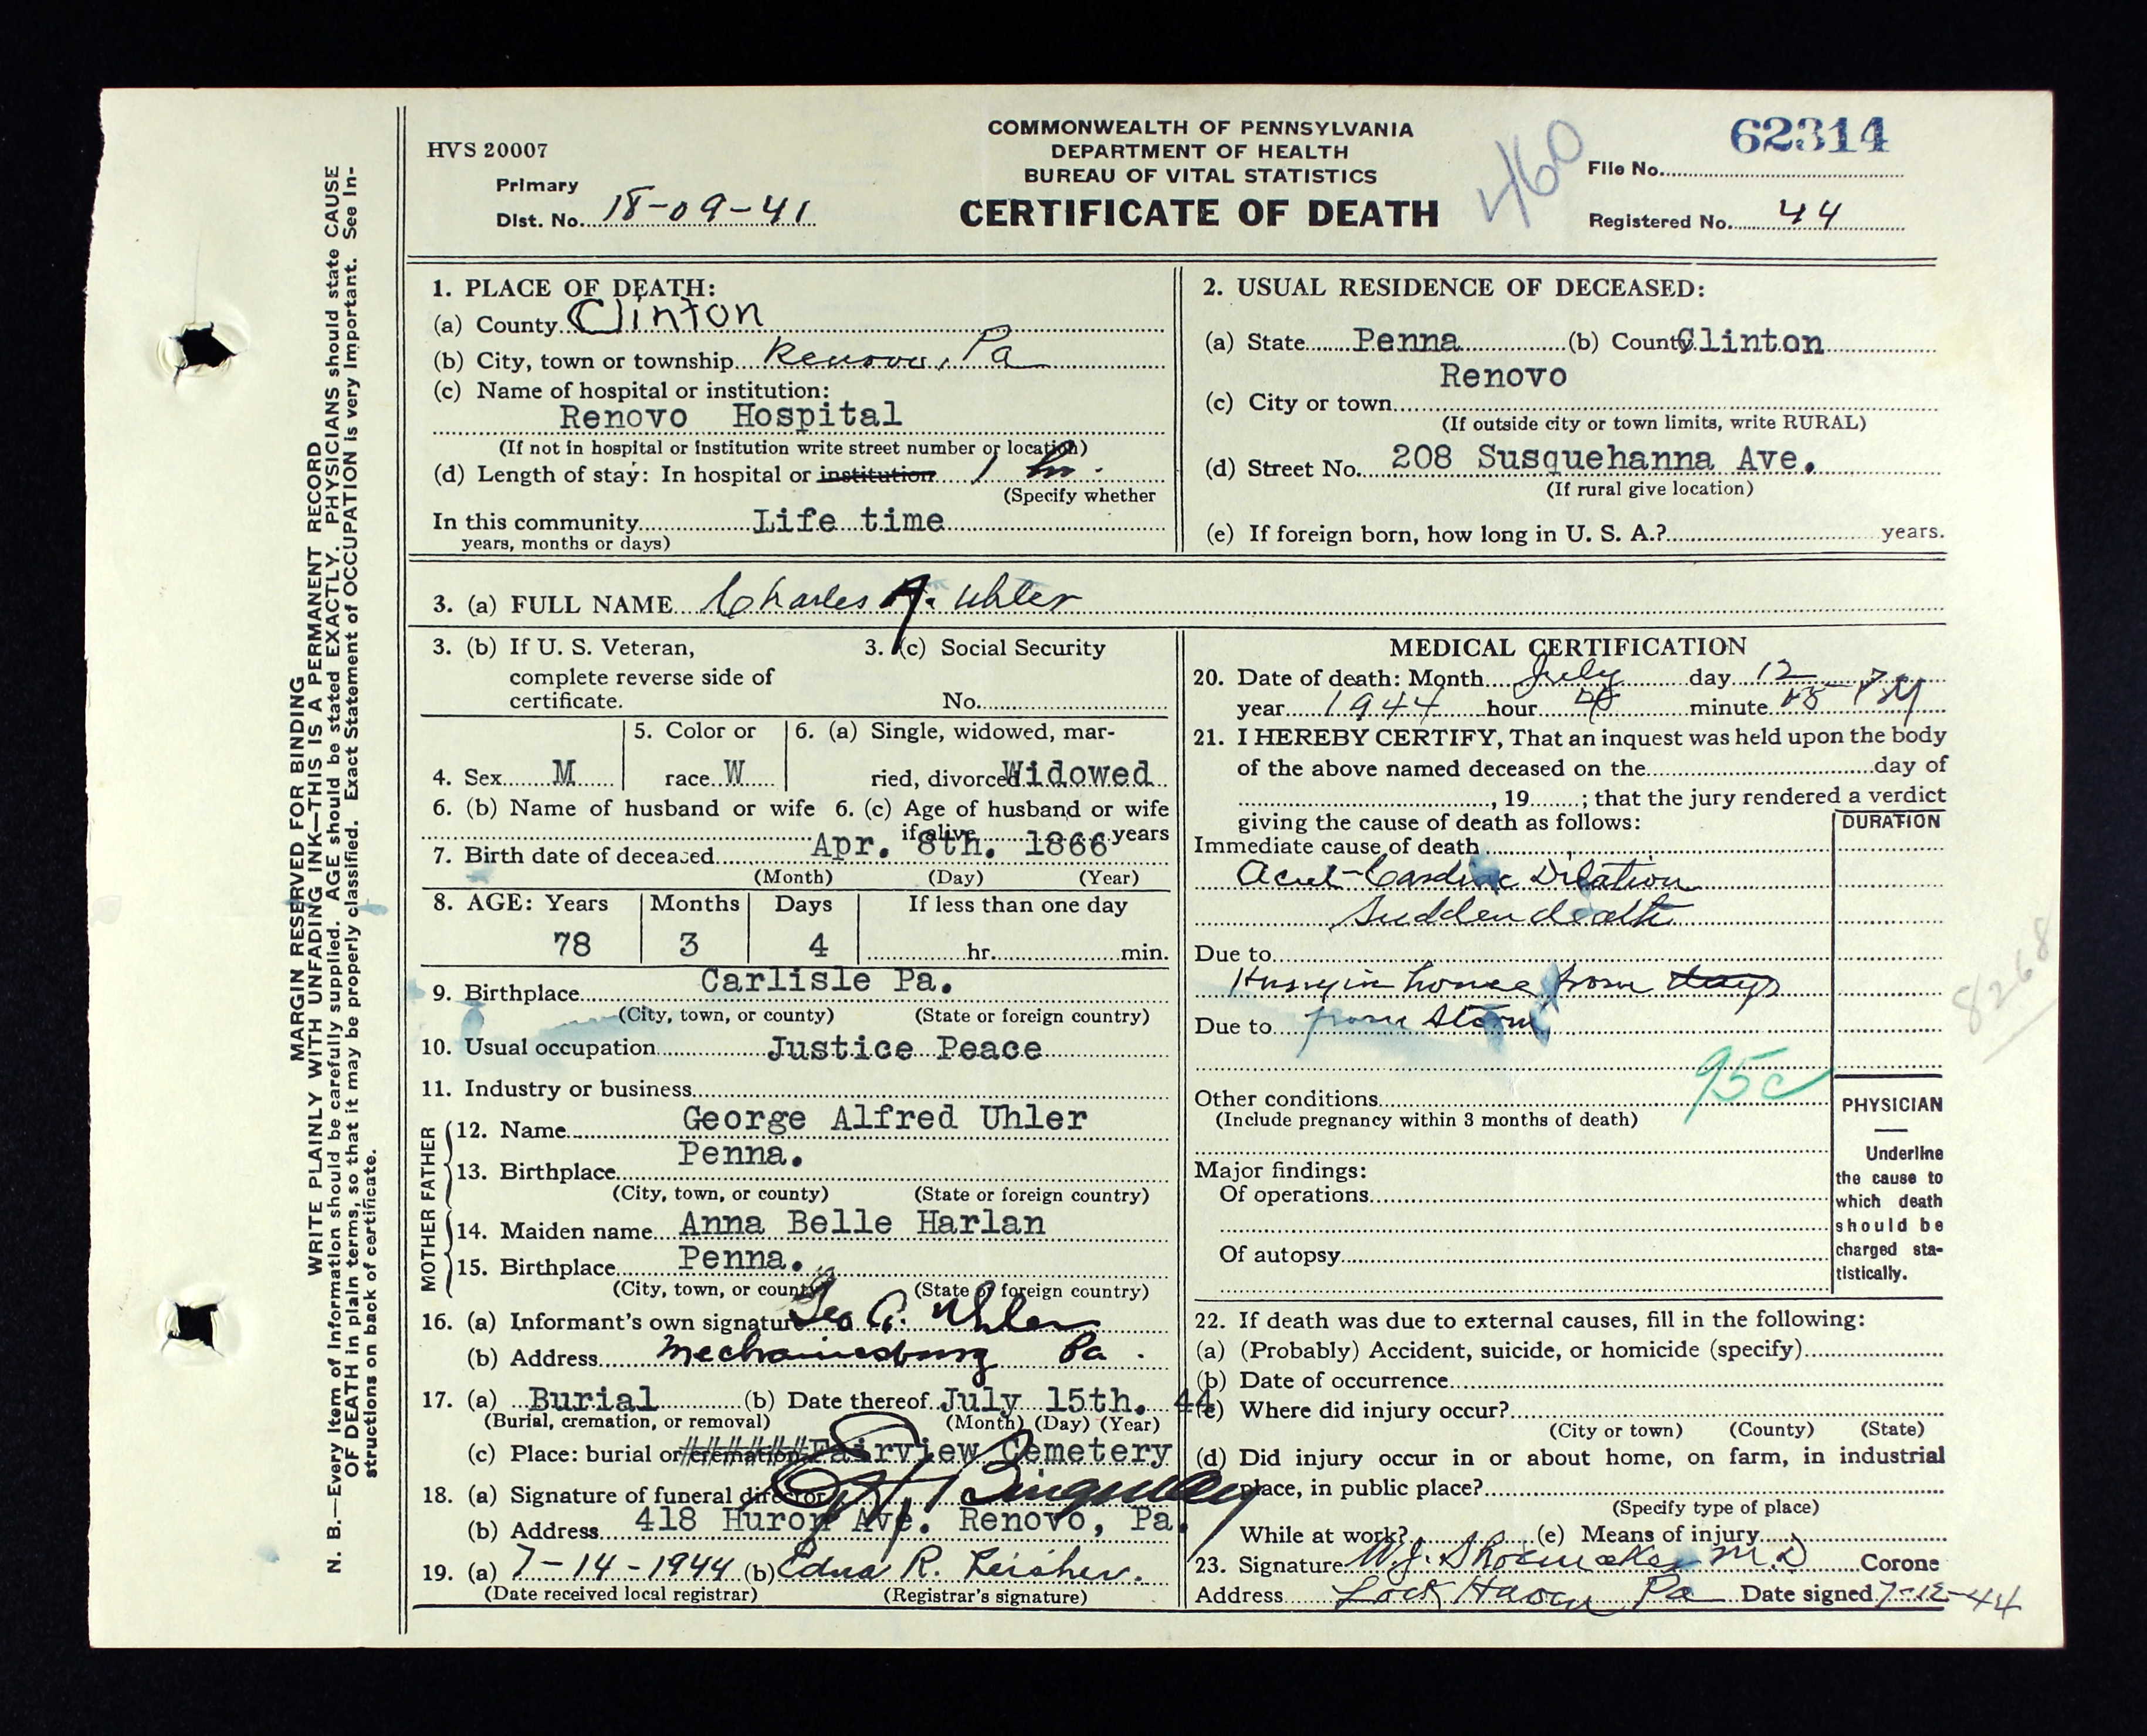 HVS 20007
COMMONWEALTH OF PENNSYLVANIA
DEPARTMENT OF HEALTH
BUREAU OF VITAL STATISTICS
CERTIFICATE OF DEATH
460
62314
File No.
Primary
Dist. No. 18-09-41
Registered No. 44
1. PLACE OF DEATH:
(a) County Clinton
(b) City, town or township Renovo, Pa
(c) Name of hospital or institution:
Renovo Hospital
(If not in hospital or institution write street number or location)
(d) Length of stay: In hospital or institution 1 hr.
(Specify whether
In this community Life time
years, months or days)
2. USUAL RESIDENCE OF DECEASED:
(a) State Penna (b) County Clinton
Renovo
(c) City or town
(If outside city or town limits, write RURAL)
(d) Street No. 208 Susquehanna Ave.
(If rural give location)
(e) If foreign born, how long in U. S. A.? years.
3. (a) FULL NAME Charles A. Uhler
3. (b) If U. S. Veteran,
complete reverse side of
certificate.
3. (c) Social Security
No.
4. Sex M
5. Color or
race W
6. (a) Single, widowed, mar-
ried, divorced Widowed
6. (b) Name of husband or wife 6. (c) Age of husband or wife
if alive years
7. Birth date of deceased Apr. 8th. 1866
(Month) (Day) (Year)
8. AGE: Years Months Days If less than one day
78 3 4 hr. min.
9. Birthplace Carlisle Pa.
(City, town, or county) (State or foreign country)
10. Usual occupation Justice Peace
11. Industry or business
FATHER
12. Name George Alfred Uhler
13. Birthplace Penna.
(City, town, or county) (State or foreign country)
MOTHER
14. Maiden name Anna Belle Harlan
15. Birthplace Penna.
(City, town, or county) (State or foreign country)
16. (a) Informant's own signature Geo A. Uhler
(b) Address Mechanicsburg Pa.
17. (a) Burial (b) Date thereof July 15th. 44
(Burial, cremation, or removal) (Month) (Day) (Year)
(c) Place: burial or cremation Fairview Cemetery
18. (a) Signature of funeral director
(b) Address 418 Huron Ave. Renovo, Pa.
19. (a) 7-14-1944 (b) Edna R. Leisher.
(Date received local registrar) (Registrar's signature)
MEDICAL CERTIFICATION
20. Date of death: Month July day 12
year 1944 hour minute PM
21. I HEREBY CERTIFY, That an inquest was held upon the body
of the above named deceased on the day of
, 19 ; that the jury rendered a verdict
giving the cause of death as follows:
DURATION
Immediate cause of death
Acut-Cardiac Dilation
Sudden death
Due to
house from
Due to from storm
95c
8268
Other conditions
(Include pregnancy within 3 months of death)
Major findings:
Of operations
Of autopsy
PHYSICIAN
Underline
the cause to
which death
should be
charged sta-
tistically.
22. If death was due to external causes, fill in the following:
(a) (Probably) Accident, suicide, or homicide (specify)
(b) Date of occurrence
(c) Where did injury occur?
(City or town) (County) (State)
(d) Did injury occur in or about home, on farm, in industrial
place, in public place?
(Specify type of place)
While at work? (e) Means of injury
23. Signature W. J. Shoemaker M.D. Corone
Address Lock Haven Pa Date signed 7-12-44
MARGIN RESERVED FOR BINDING
WRITE PLAINLY WITH UNFADING INK—THIS IS A PERMANENT RECORD
N. B.—Every item of information should be carefully supplied. AGE should be stated EXACTLY. PHYSICIANS should state CAUSE
OF DEATH in plain terms, so that it may be properly classified. Exact Statement of OCCUPATION is very important. See In-
structions on back of certificate.